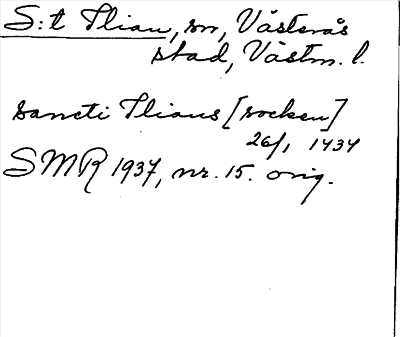 S:t Ilian, sn, Västerås
stad, Västm. l.
sancti Ilians [socken]
26/1 1434
SMR 1937, nr. 15. orig.